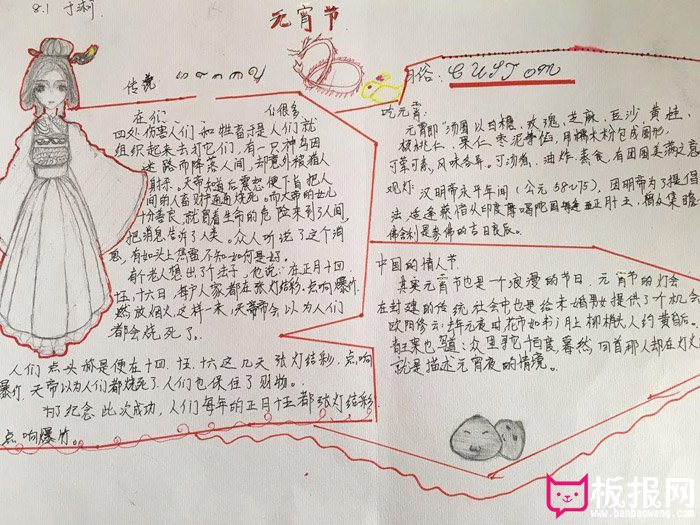 8.1
元宵节
传说
在
很多
四处伤害人们和牲畜于是人们就
组织起来去打它们，有一只神鸟因
迷路而降落人间，却意外被猎人
射杀。天帝知道后震怒便下旨把人
间的人畜财神通通烧死。而天帝的女儿
十分善良，就冒着生命的危险来到了人间，
把消息告诉了人类。众人听说了这个消
息，有如头上焦雷不知如何是好。
有个老人想出了个法子，他说：在正月十四、
十五、十六日，每户人家都在张灯结彩、点响爆竹，
然放烟火这样一来，天帝会以为人们
都会烧死了。
人们点头便在十四、十五、十六这几天张灯结彩、点响
爆竹，天帝以为人们都烧死了，人们也保住了财物。
为了纪念此次成功，人们每年的正月十五都张灯结彩
点响爆竹。
俗：CUSTOM
吃元宵：
元宵即"汤圆以白糖、玫瑰、芝麻、豆沙、黄桂、
核桃仁、果仁、枣泥等馅，用糯米粉包成圆形。
可荤可素，风味各异。可汤煮、油炸、蒸食，有团圆美满之意
观灯：汉明帝永平年间（公元58-75），因明帝为了提倡
法
中国的情人节
其实元宵节也是一个浪漫的节日，元宵节的灯会
在封建的传统社会中也是给未婚男女提供了个机会
欧阳修云：去年元夜时花市如昼月上柳梢头人约黄昏后。
也写道：众里寻它千百度，蓦然回首那人却在灯火
就是描述元宵夜的情境。
板报网
www.banbaowang.com